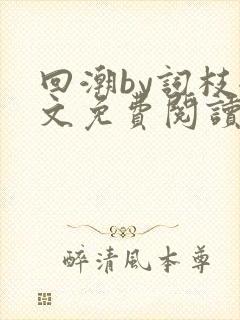 回潮by詞枝
文免費閱讀
醉清風本尊